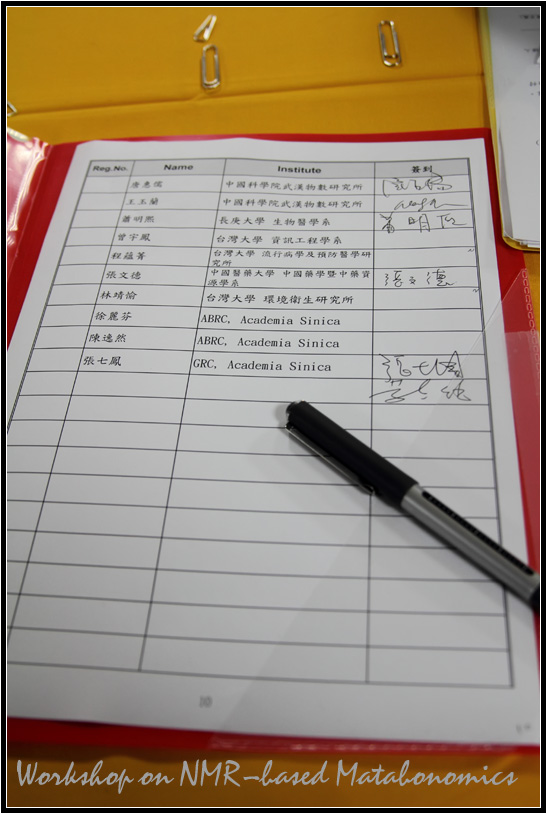 Reg.No. Name Institute 簽到
唐惠儒 中國科學院武漢物數研究所
王玉蘭 中國科學院武漢物數研究所
蕭明熙 長庚大學 生物醫學系 蕭明熙
曾宇鳳 台灣大學 資訊工程學系
程蘊菁 台灣大學 流行病學及預防醫學研
究所
張文德 中國醫藥大學 中國藥學暨中藥資 張文德
源學系
林靖愉 台灣大學 環境衛生研究所
徐麗芬 ABRC, Academia Sinica
陳逸然 ABRC, Academia Sinica
張七鳳 GRC, Academia Sinica 張七鳳
10
Workshop on NMR-based Matabonomics